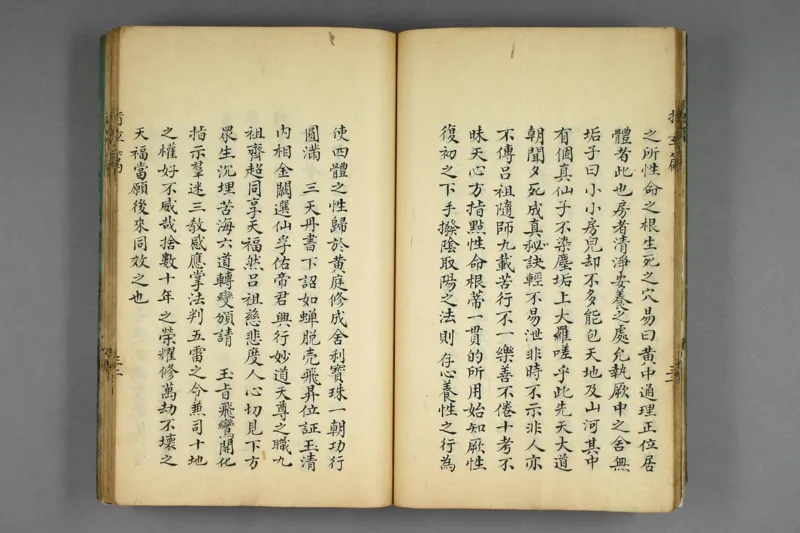 之所性命之根生死之穴易曰黃中通理正位居
體者此也房者清淨安養之處允執厥中之舍無
垢子曰小小房兒却不多能包天地及山河其中
有個真仙子不染塵垢上大羅嗟乎此先天大道
朝聞夕死成真秘訣輕不易泄非時不示非人亦
不傳呂祖隨師九載苦行不一樂善不倦十考不
昧天心方指點性命根蒂一貫的所用始知厥性
復初之下手撥陰取陽之法則存心養性之行為
使四體之性歸於黄庭修成舍利寶珠一朝功行
圓滿 三天丹書下詔如蝉脱壳飛昇位証玉清
內相金闕選仙孚佑帝君興行妙道天尊之職九
祖齊超同享天福然呂祖慈悲度人心切見下方
眾生沉埋苦海六道轉變頒請 玉旨飛鸞開化
指示羣迷三教感應掌法判五雷之令兼司十地
之權好不威哉捨數十年之榮耀修萬劫不壞之
天福當願後來同效之也